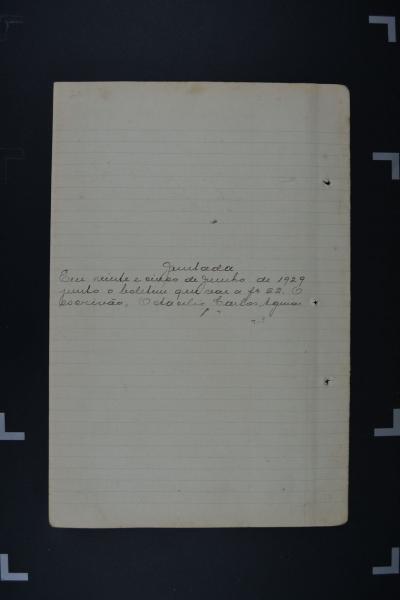 Juntada
Em vinte e cinco de Junho de 1929
junto o boletim que vae a fs 22. O
escrivão, Octacilio Carlos Aguiar